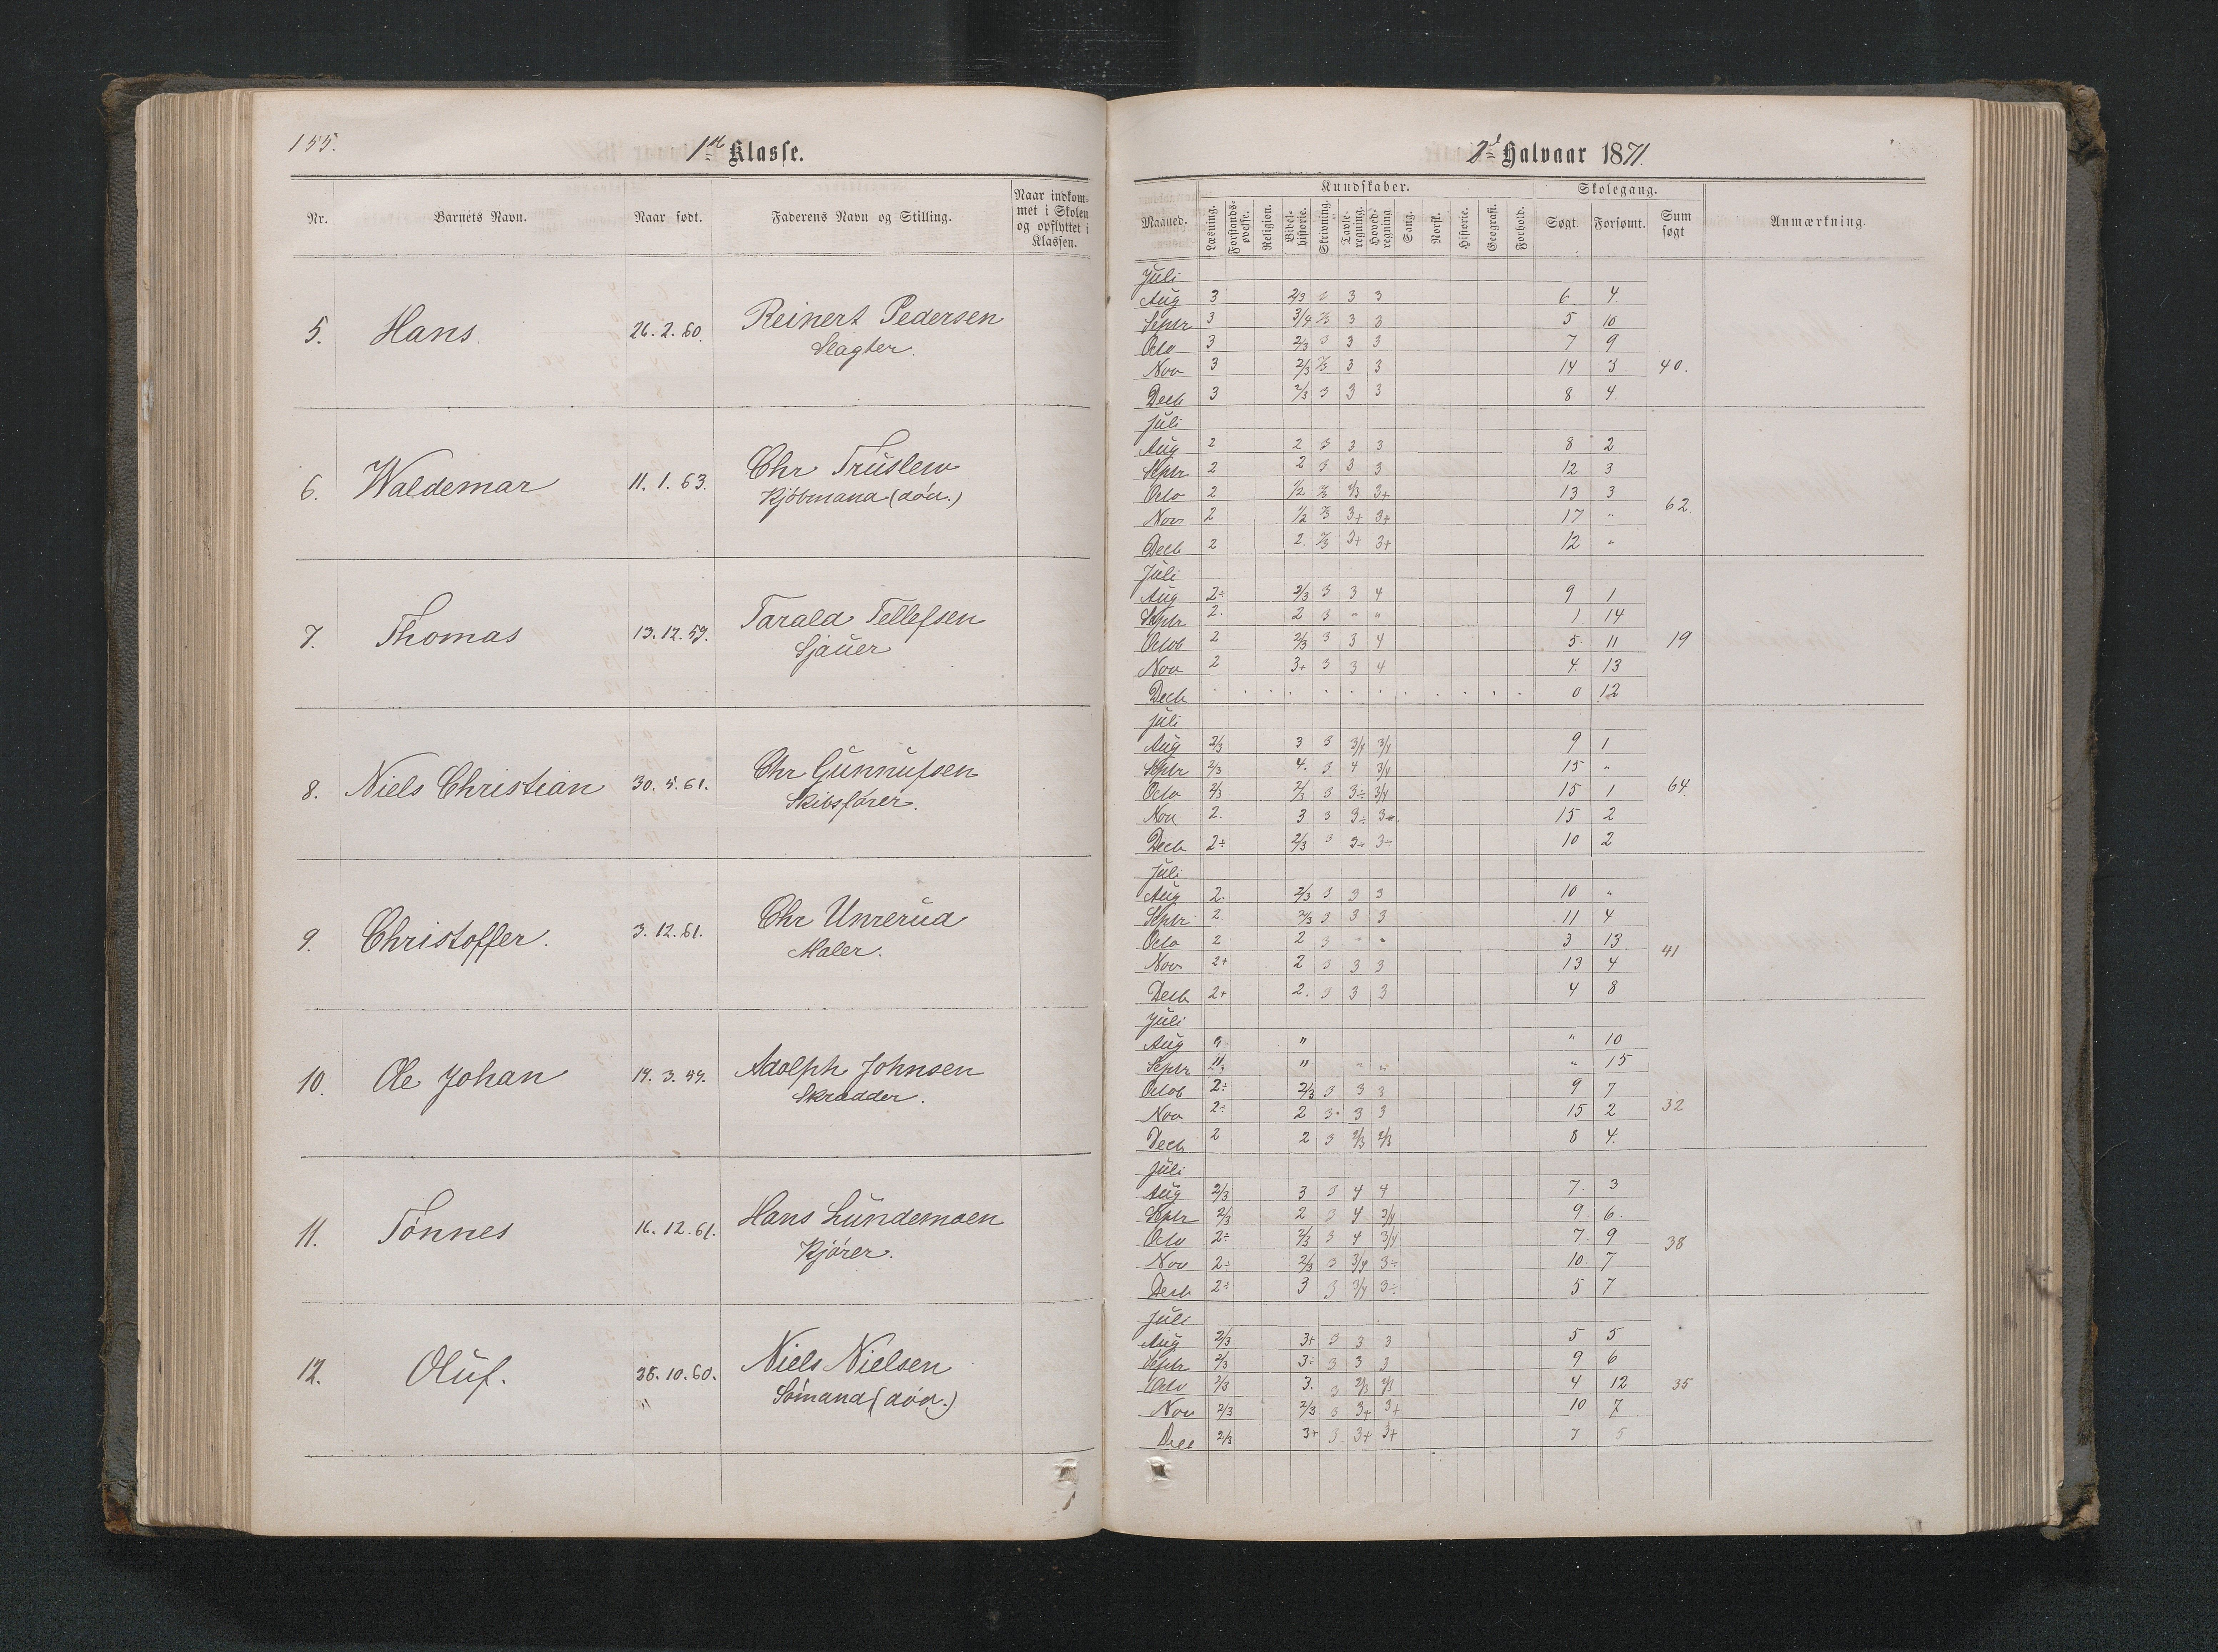 155.
1ste Klasse.
Nr. Barnets Navn. Naar født. Faderens Navn og Stilling. Naar indkommet i Skolen og opflyttet i Klassen.
5. Hans. 26.2.60. Reinert Pedersen
Slagter.
6. Waldemar 11.1.63. Chr Truslew
Kjöbmand (död.)
7. Thomas 13.12.59. Tarald Tellefsen
Sjauer
8. Niels Christian 30.5.61. Chr Gunnufsen
Skibsförer.
9. Christoffer. 3.12.61. Chr Unnerud
Maler.
10. Ole Johan 19.3.59. Adolph Johnsen
Skrædder.
11. Tönnes 16.12.61. Hans Lundemoen
Kjörer.
12. Oluf. 28.10.60. Niels Nielsen
" Sömand (död.)
2det Halvaar 1871.
Kundskaber. Skolegang.
Maaned. Læsning. Forstandsøvelse. Religion. Bibelhistorie. Skrivning. Tavleregning. Hovedregning. Sang. Norsk. Historie. Geografi. Forhold. Søgt. Forsømt. Sum søgt Anmærkning.
Juli
Aug 3 2/3 3 3 3 6 4
Septr 3 3/4 2/3 3 3 5 10
Octo 3 2/3 3 3 3 7 9
Nov 3 2/3 2/3 3 3 14 3 40.
Decb 3 2/3 3 3 3 8 4
Juli
Aug 2 2 3 3 3 8 2
Septr 2 2 3 3 3 12 3
Octo 2 1/2 2/3 2/3 3+ 13 3 62.
Nov 2 1/2 2/3 3+ 3+ 17 "
Decb 2 2. 2/3 3+ 3+ 12 "
Juli
Aug 2÷ 2/3 3 3 4 9 1
Septr 2. 2 3 " " 1 14
Octob 2 2/3 3 3 4 5 11 19
Nov 2 3+ 3 3 4 4. 13
Decb . . . . . . . . . . . 0 12
Juli
Aug 2/3 3 3 3/4 3/4 9 1
Septr 2/3 4. 3 4 3/4 15 "
Octo 2/3 2/3 3 3÷ 3/4 15 1 64.
Nov 2. 3 3 3÷ 3÷ 15 2
Decb 2÷ 2/3 3 3÷ 3÷ 10 2
Juli
Aug 2. 2/3 3 3 3 10 "
Septr 2. 2/3 3 3 3 11 4
Octo 2 2 3 " " 3 13 41
Nov 2+ 2 3 3 3 13 4
Decb 2+ 2. 3 3 3 4 8
Juli
Aug " " 10
Septr " " " " 15
Octob 2÷ 2/3 3 3 3 9 7
Nov 2÷ 2 3 3 3 15 2 32
Decb 2 2 3 2/3 2/3 8 4.
Juli
Aug 2/3 3 3 4 4 7. 3
Septr 2/3 2 3 4 3/4 9. 6.
Octo 2÷ 2/3 3 4 3/4 7. 9 38
Nov 2÷ 2/3 3 3/4 3÷ 10. 7
Decb 2÷ 3 3 3/4 3÷ 5 7
Juli
Aug 2/3 3+ 3 3 3 5 5
Septr 2/3 3÷ 3 3 3 9 6
Octo 2/3 3. 3 2/3 2/3 4 12 35
Nov 2/3 2/3 3 3+ 3+ 10 7
Dec 2/3 3+ 3 3+ 3+ 7 5